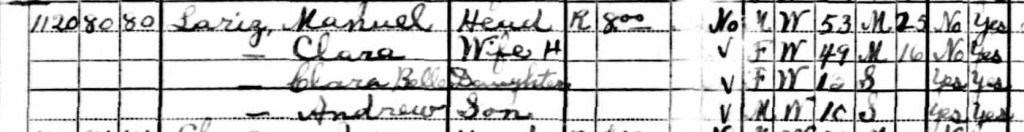 1120 80 80 Lariz, Manuel Head R 8.00 No M W 53 M 25 No Yes
— Clara Wife H ✓ F W 49 M 16 No Yes
— Clara Belle Daughter ✓ F W S Yes Yes
— Andrew Son ✓ M W 10 S Yes Yes